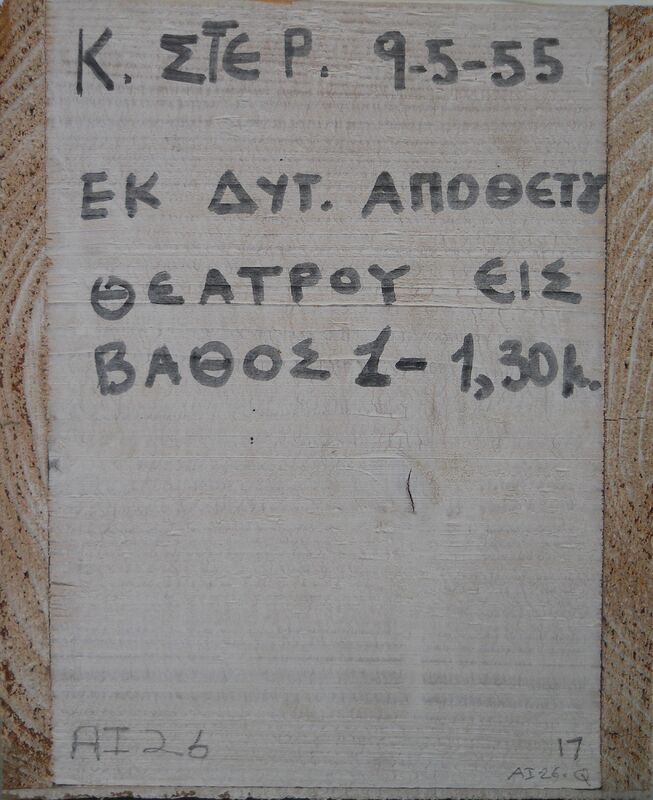 Κ. ΣΤΕΡ. 9-5-55
ΕΚ ΔΥΤ. ΑΠΟΘΕΤΟΥ
ΘΕΑΤΡΟΥ ΕΙΣ
ΒΑΘΟΣ 1-1,30μ.
AI26
17
AI26.Q